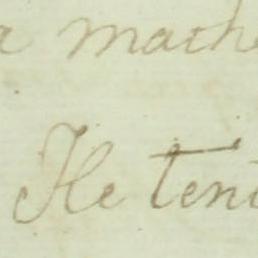 a mathe
He tent